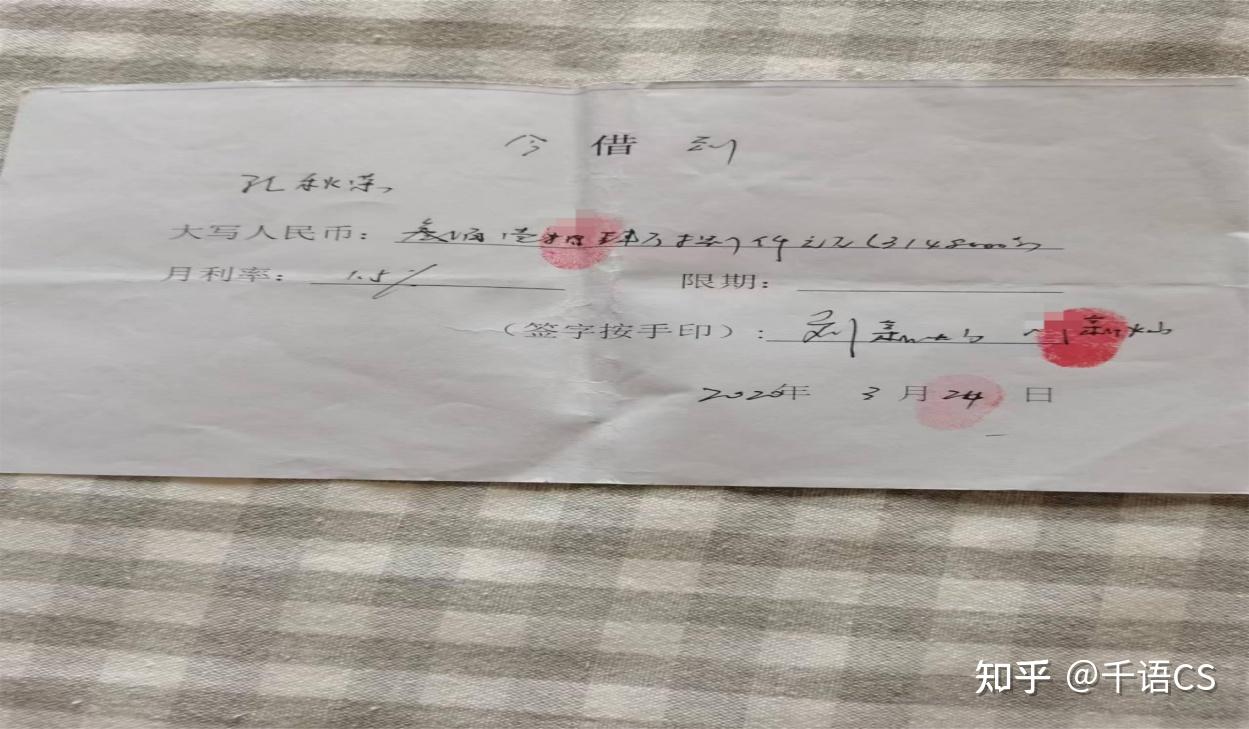 今借到
孔秋荣
大写人民币：叁佰壹拾肆万捌仟元(3148000元)
月利率：1.5% 限期：
（签字按手印）：刘新灿 刘新灿
2020年 3月24日
知乎 @千语CS